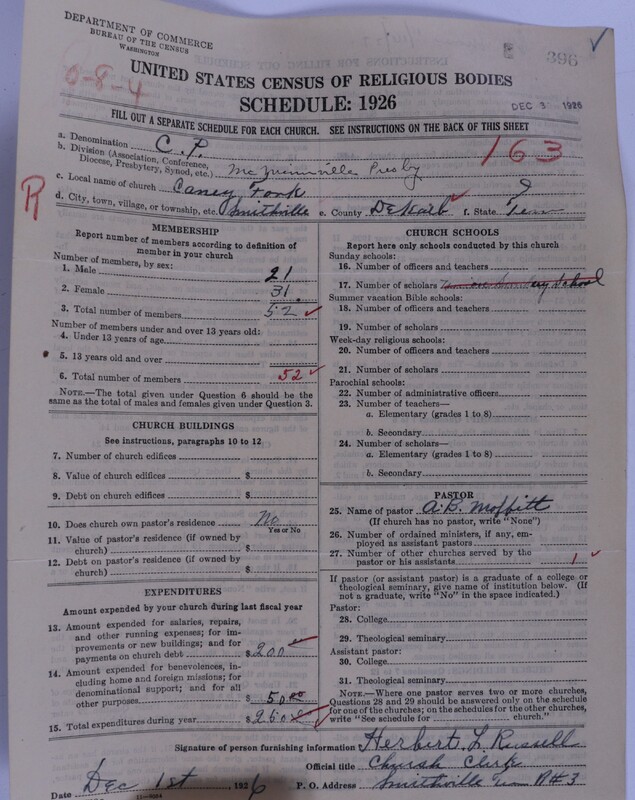 DEPARTMENT OF COMMERCE
BUREAU OF THE CENSUS
WASHINGTON
E 396
0-8-4
UNITED STATES CENSUS OF RELIGIOUS BODIES
SCHEDULE: 1926
DEC 3 1926
FILL OUT A SEPARATE SCHEDULE FOR EACH CHURCH. SEE INSTRUCTIONS ON THE BACK OF THIS SHEET
163
a. Denomination C. P.
b. Division (Association, Conference,
Diocese, Presbytery, Synod, etc.) McMinnville Presby
c. Local name of church Caney Fork
R
d. City, town, village, or township, etc. Smithville e. County DeKalb f. State Tenn
MEMBERSHIP
Report number of members according to definition of
member in your church
Number of members, by sex:
1. Male 21
2. Female 31
3. Total number of members 52
Number of members under and over 13 years old:
4. Under 13 years of age
5. 13 years old and over
6. Total number of members 52
NOTE.—The total given under Question 6 should be
same as the total of males and females given under Question 3.
CHURCH BUILDINGS
See instructions, paragraphs 10 to 12
7. Number of church edifices
8. Value of church edifices $
9. Debt on church edifices $
10. Does church own pastor's residence No
Yes or No
11. Value of pastor's residence (if owned by
church) $
12. Debt on pastor's residence (if owned by
church) $
EXPENDITURES
Amount expended by your church during last fiscal year
13. Amount expended for salaries, repairs,
and other running expenses; for im-
provements or new buildings; and for
payments on church debt $ 200
14. Amount expended for benevolences, in-
cluding home and foreign missions; for
denominational support; and for all
other purposes $ 50.00
15. Total expenditures during year $ 250
CHURCH SCHOOLS
Report here only schools conducted by this church
Sunday schools:
16. Number of officers and teachers
17. Number of scholars Union Sunday School
Summer vacation Bible schools:
18. Number of officers and teachers
19. Number of scholars
Week-day religious schools:
20. Number of officers and teachers
21. Number of scholars
Parochial schools:
22. Number of administrative officers
23. Number of teachers—
a. Elementary (grades 1 to 8)
b. Secondary
24. Number of scholars—
a. Elementary (grades 1 to 8)
b. Secondary
PASTOR
25. Name of pastor A. B. Moffitt
(If church has no pastor, write "None")
26. Number of ordained ministers, if any, em-
ployed as assistant pastors
27. Number of other churches served by the
pastor or his assistants 1
If pastor (or assistant pastor) is a graduate of a college or
theological seminary, give name of institution below. (If
not a graduate, write "No" in the space indicated.)
Pastor:
28. College
29. Theological seminary
Assistant pastor:
30. College
31. Theological seminary
NOTE.—Where one pastor serves two or more churches,
Questions 28 and 29 should be answered only on the schedule
for one of the churches; on the schedules for the other churches,
write "See schedule for church."
Signature of person furnishing information Herbert L. Russell
Official title Church Clerk
Date Dec 1st, 1926 P. O. Address Smithville Tenn R#3